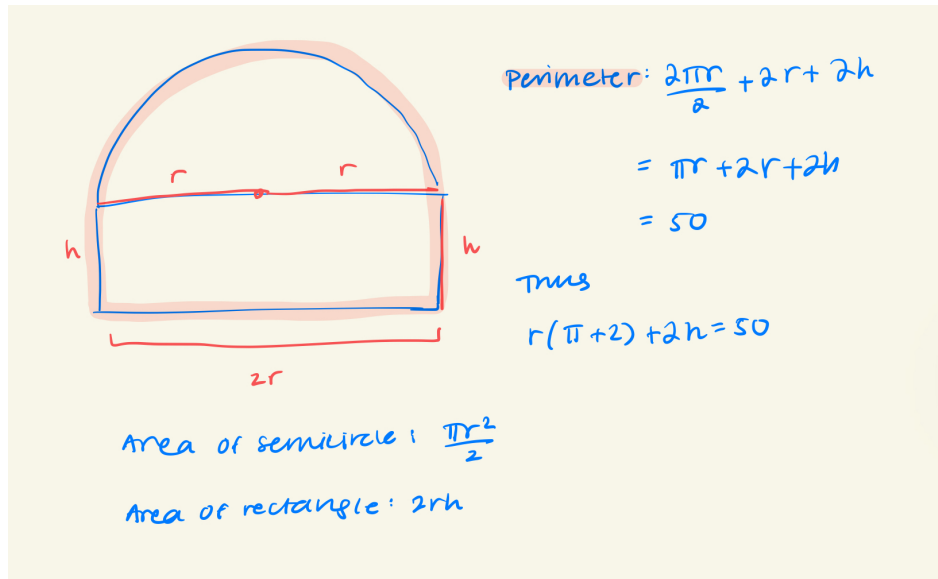 r r
h h
2r
Perimeter: 2πr/2 + 2r + 2h
= πr + 2r + 2h
= 50
Thus
r(π+2) + 2h = 50
Area of semicircle: πr²/2
Area of rectangle: 2rh